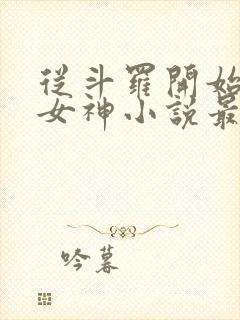 從斗羅開始
女神小說最
吟暮